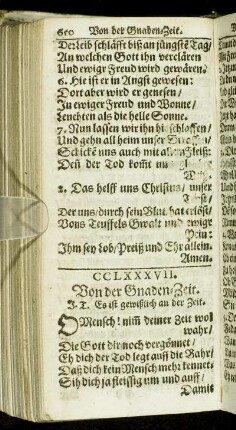 650 Von der Gnaden-Zeit.
Der leib schläfft biß an jüngstē Tag/
An welchen Gott ihn verclären
Und ewigr Freud wird gewären.
6. Hie ist er in Angst gewesen:
Dort aber wird er genesen/
In ewiger Freud und Wonne/
Leuchten als die helle Sonne.
7. Nun lassen wir ihn hi schlaffen/
Und gehn all heim unser Strassen/
Schickē uns auch mit allem Fleiß:
Deñ der Tod kom̃t un
8. Das helff uns Christus/ unser
Trost/
Der uns/ durch sein Blut hat erlöst/
Vons Teuffels Gwalt und ewiger
Pein:
Ihm sey Lob/ Preiß und Ehr allein.
Amen.
CCLXXXVII.
Von der Gnaden-Zeit.
J. T. Es ist gewißlich an der Zeit.
O Mensch! nim̃ deiner Zeit wol
wahr/
Die Gott dir noch vergönnet/
Eh dich der Tod legt auff die Bahr/
Daß dich kein Mensch mehr kennet.
Sih dich ja fleissig um und auff/
Damit